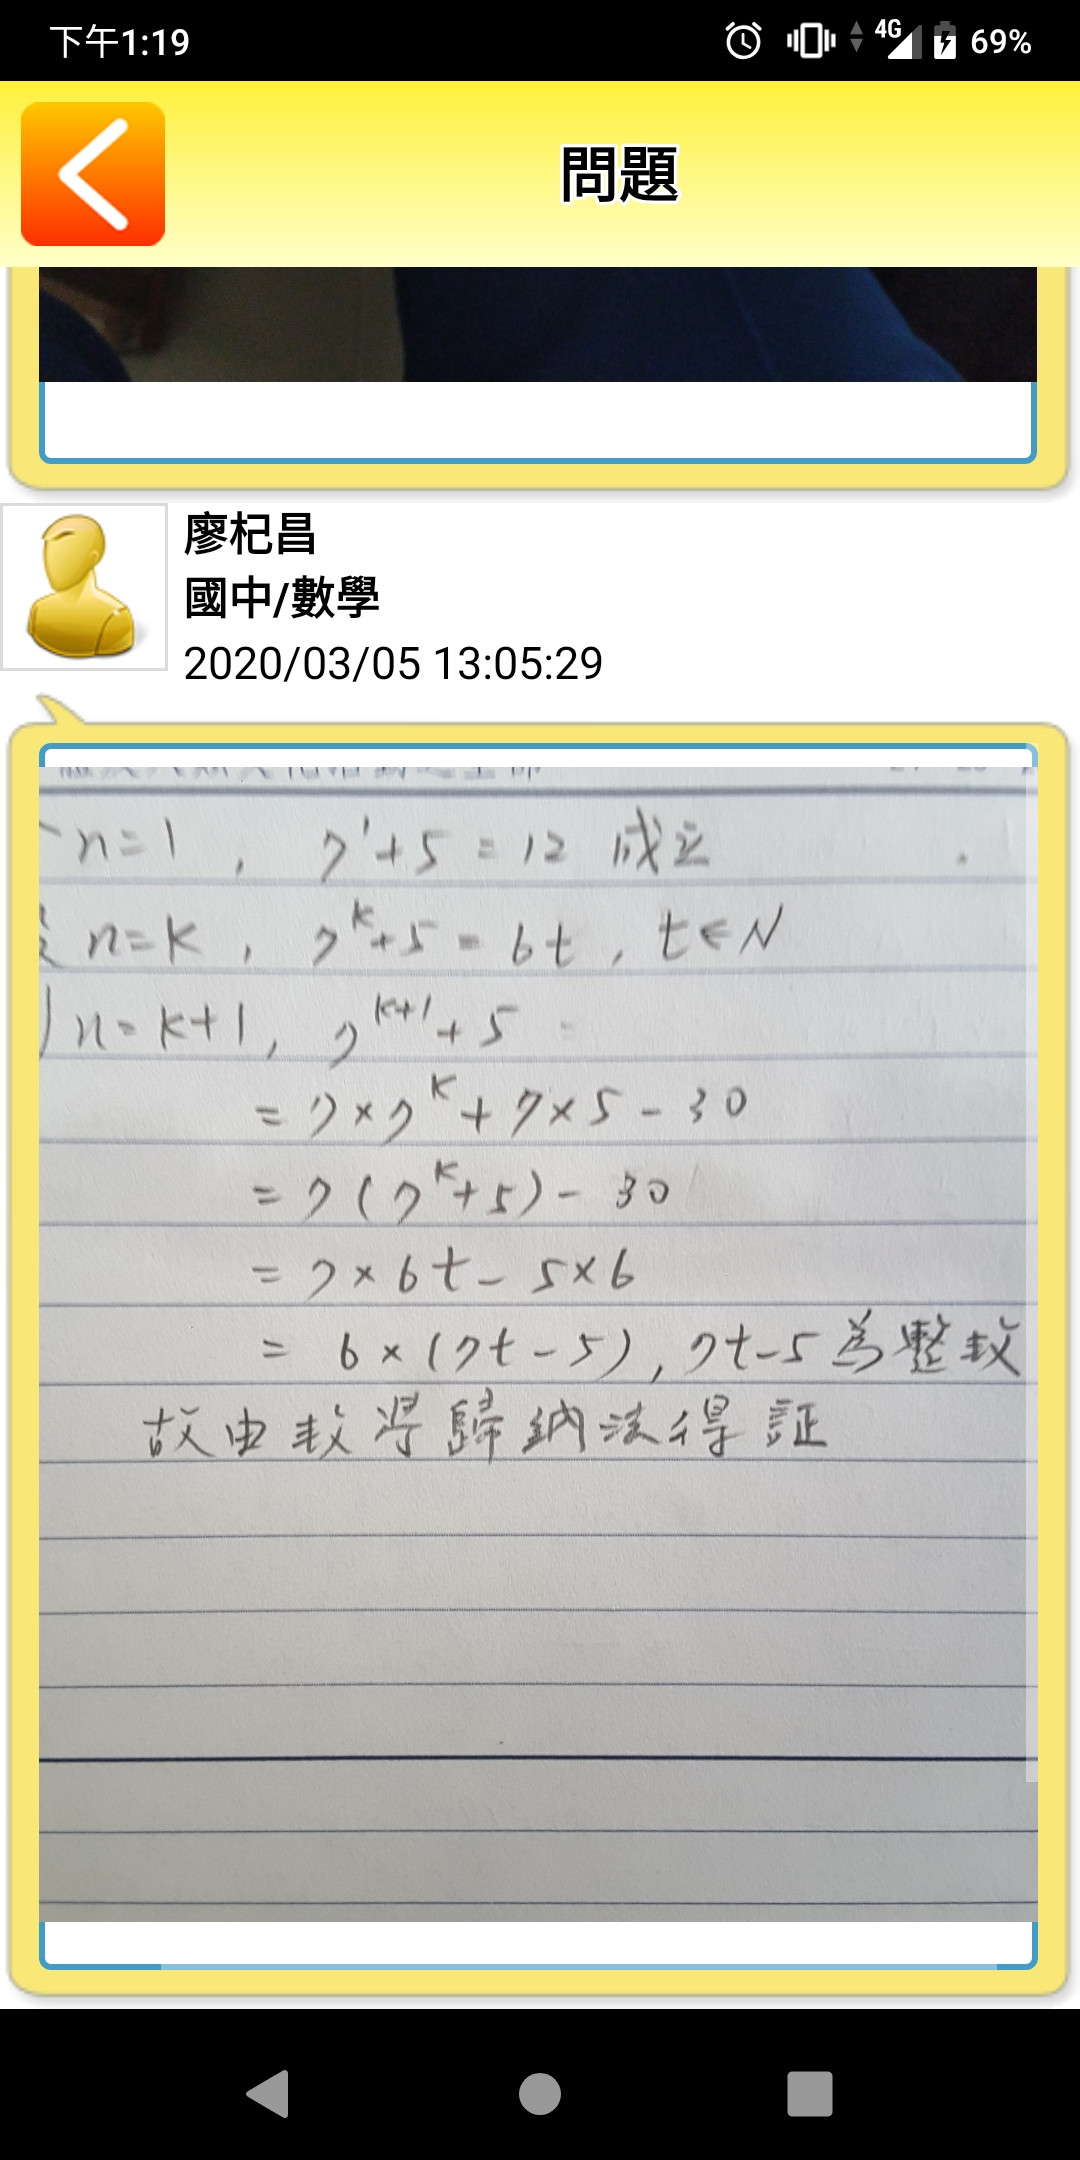 下午1:19
4G
69%
問題
廖杞昌
國中/數學
2020/03/05 13:05:29
n=1, 7¹+5=12 成立
n=k, 7^k+5=6t, t∈N
n=k+1, 7^(k+1)+5=
=7×7^k+7×5-30
=7(7^k+5)-30
=7×6t-5×6
=6×(7t-5), 7t-5為整数
故由数学歸納法得証